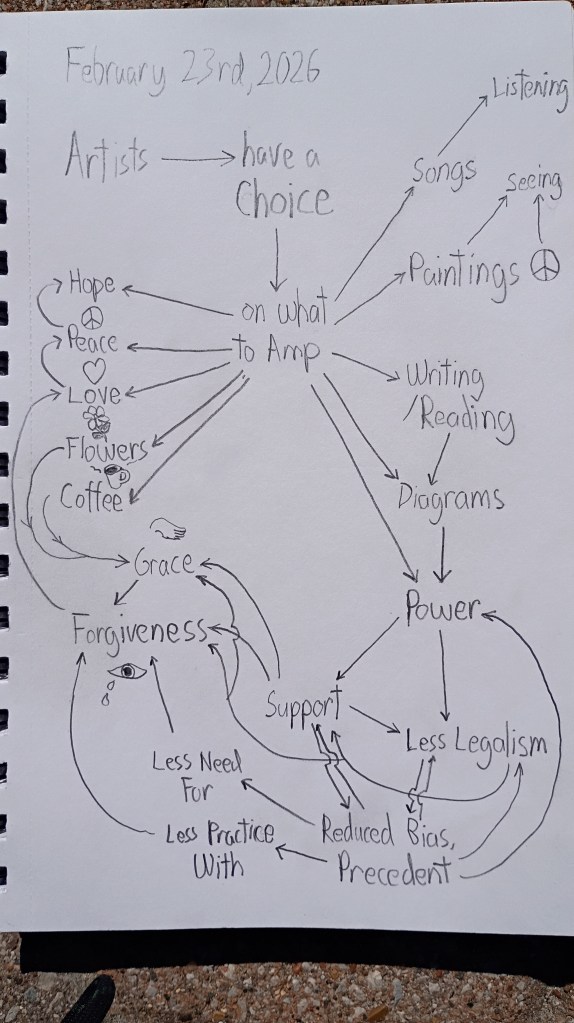 February 23rd, 2026
Artists
have a
Choice
on what
to Amp
Songs
Listening
Paintings
Seeing
Writing
/Reading
Diagrams
Power
Hope
Peace
Love
Flowers
Coffee
Grace
Forgiveness
Support
Less Legalism
Less Need
For
Less Practice
With
Reduced Bias,
Precedent